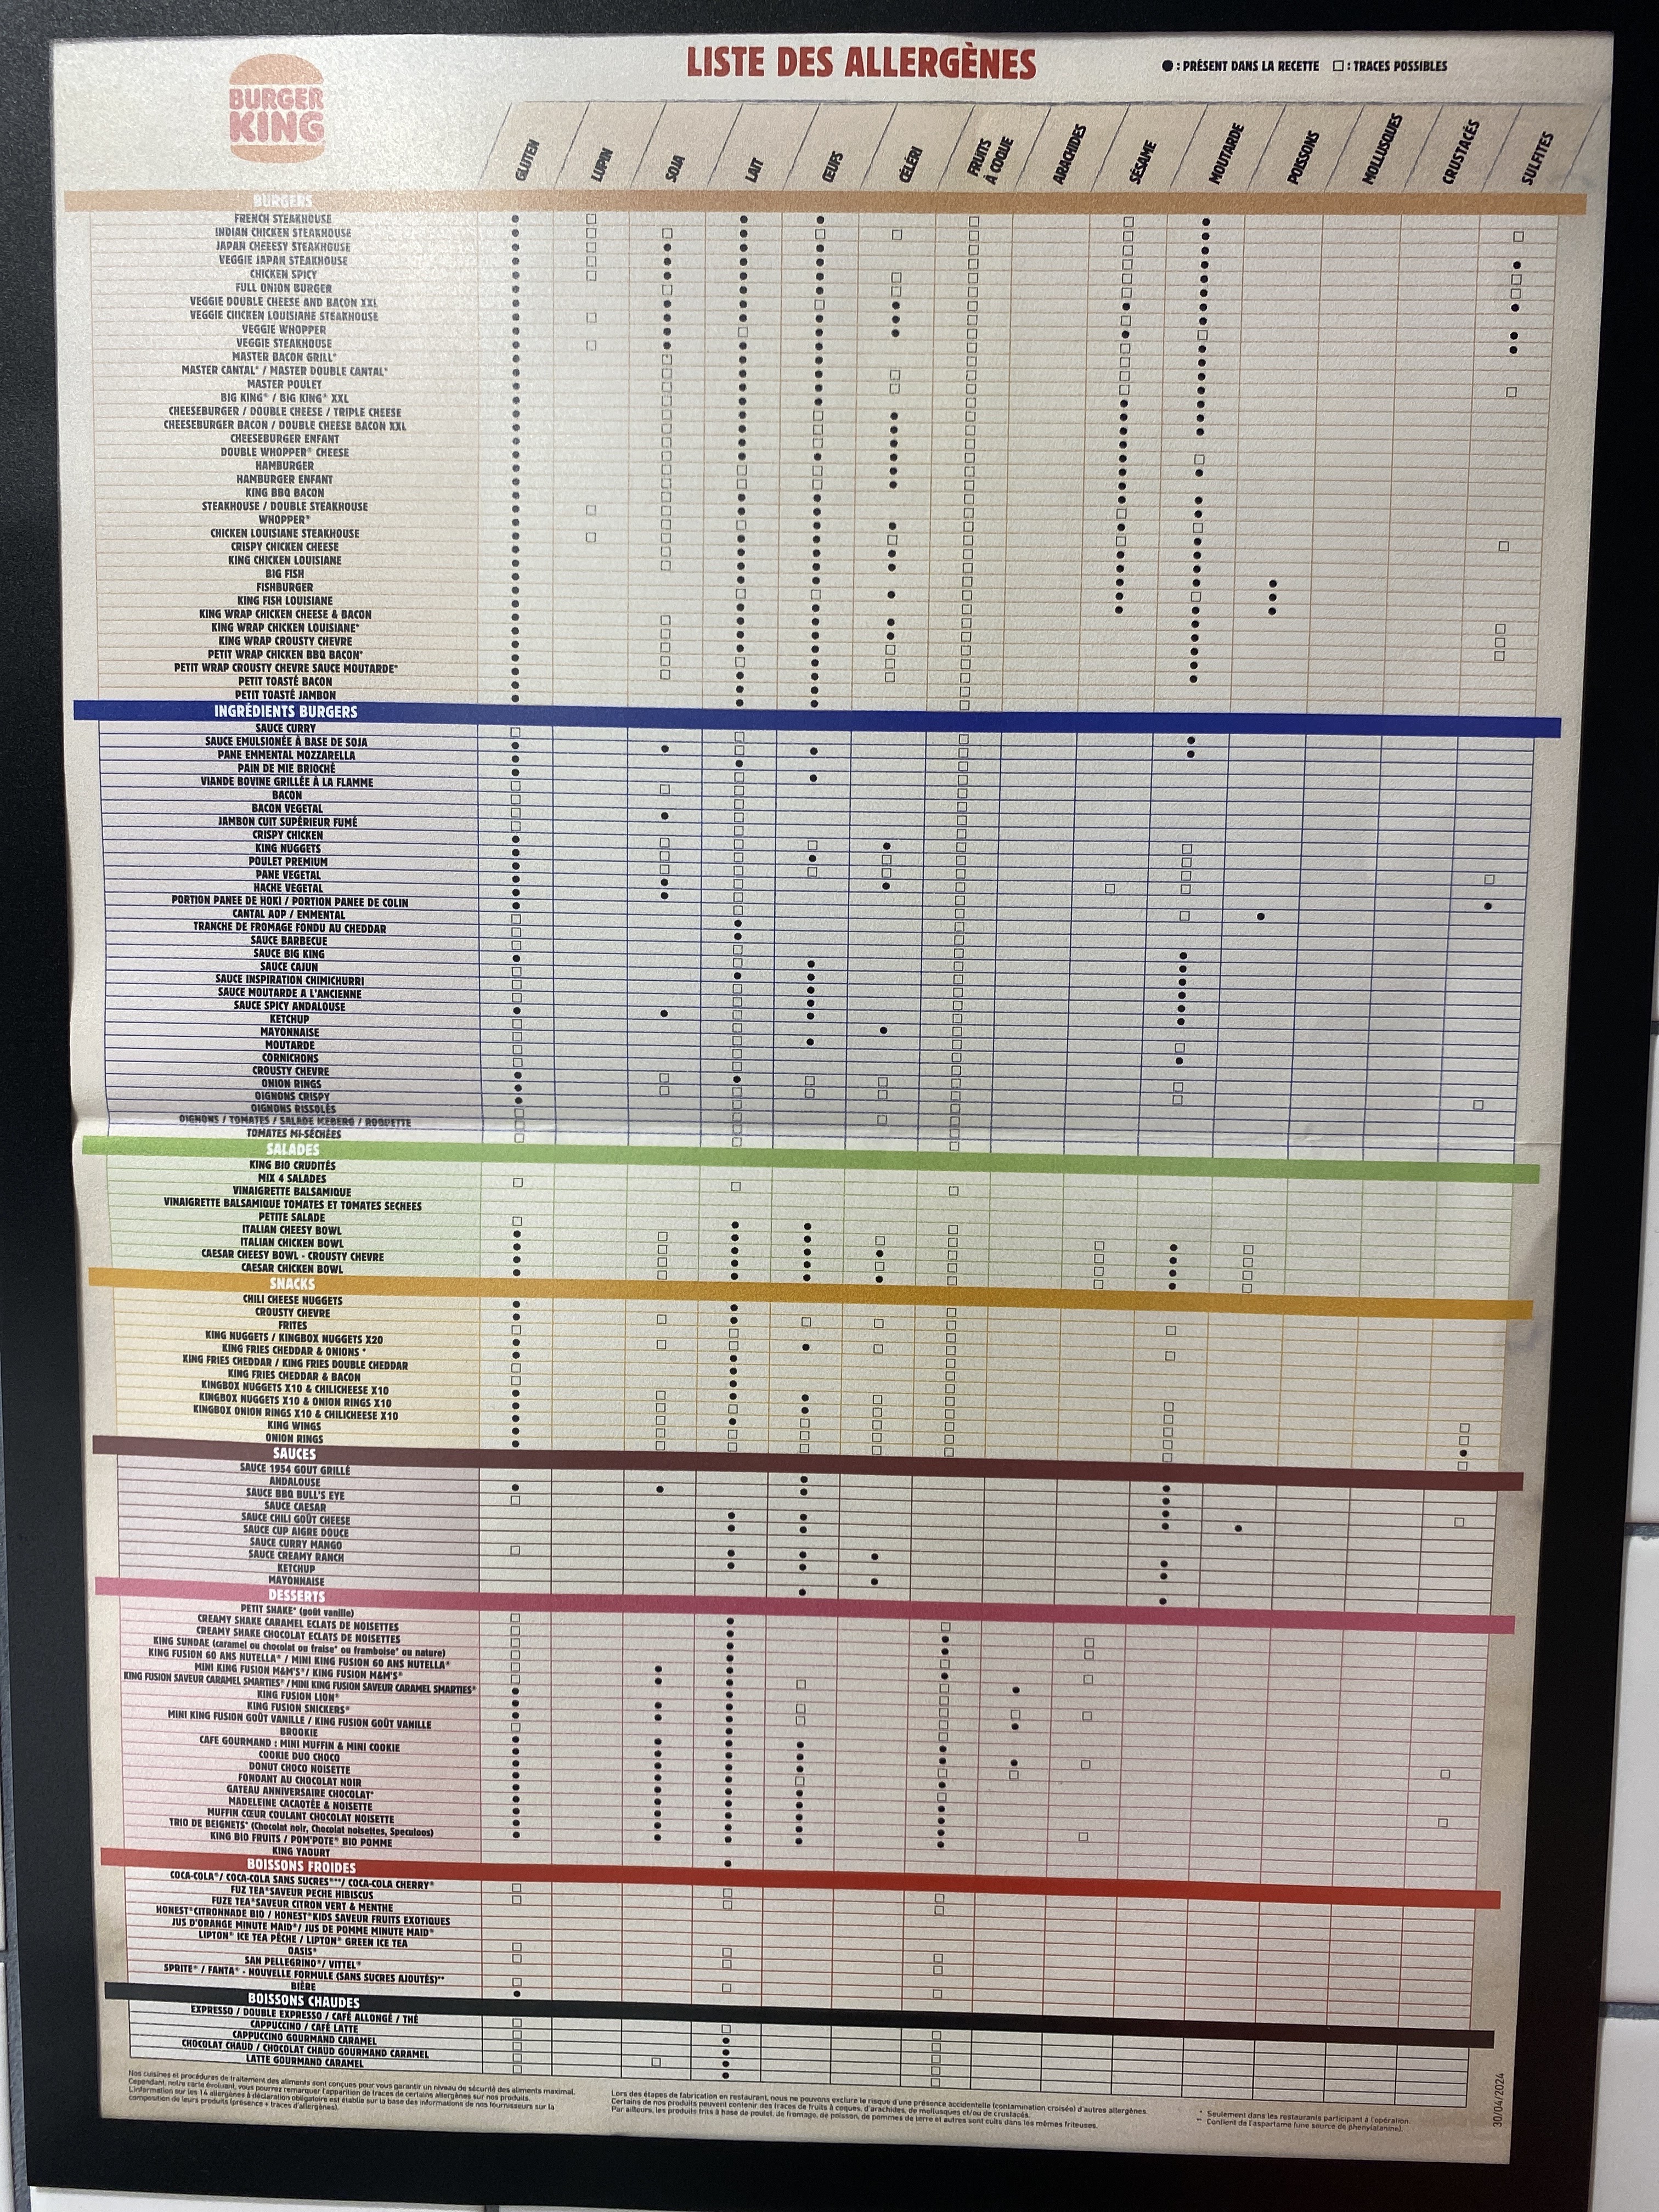 BURGER
KING
LISTE DES ALLERGÈNES
● : PRÉSENT DANS LA RECETTE □ : TRACES POSSIBLES
GLUTEN
LUPIN
SOJA
LAIT
ŒUFS
CÉLÉRI
FRUITS
À COQUE
ARACHIDES
SÉSAME
MOUTARDE
POISSONS
MOLLUSQUES
CRUSTACÉS
SULFITES
BURGERS
FRENCH STEAKHOUSE
INDIAN CHICKEN STEAKHOUSE
JAPAN CHEEESY STEAKHOUSE
VEGGIE JAPAN STEAKHOUSE
CHICKEN SPICY
FULL ONION BURGER
VEGGIE DOUBLE CHEESE AND BACON XXL
VEGGIE CHICKEN LOUISIANE STEAKHOUSE
VEGGIE WHOPPER
VEGGIE STEAKHOUSE
MASTER BACON GRILL*
MASTER CANTAL* / MASTER DOUBLE CANTAL*
MASTER POULET
BIG KING® / BIG KING® XXL
CHEESEBURGER / DOUBLE CHEESE / TRIPLE CHEESE
CHEESEBURGER BACON / DOUBLE CHEESE BACON XXL
CHEESEBURGER ENFANT
DOUBLE WHOPPER® CHEESE
HAMBURGER
HAMBURGER ENFANT
KING BBQ BACON
STEAKHOUSE / DOUBLE STEAKHOUSE
WHOPPER®
CHICKEN LOUISIANE STEAKHOUSE
CRISPY CHICKEN CHEESE
KING CHICKEN LOUISIANE
BIG FISH
FISHBURGER
KING FISH LOUISIANE
KING WRAP CHICKEN CHEESE & BACON
KING WRAP CHICKEN LOUISIANE*
KING WRAP CROUSTY CHEVRE
PETIT WRAP CHICKEN BBQ BACON*
PETIT WRAP CROUSTY CHEVRE SAUCE MOUTARDE*
PETIT TOASTÉ BACON
PETIT TOASTÉ JAMBON
INGRÉDIENTS BURGERS
SAUCE CURRY
SAUCE EMULSIONÉE À BASE DE SOJA
PANE EMMENTAL MOZZARELLA
PAIN DE MIE BRIOCHÉ
VIANDE BOVINE GRILLÉE À LA FLAMME
BACON
BACON VEGETAL
JAMBON CUIT SUPÉRIEUR FUMÉ
CRISPY CHICKEN
KING NUGGETS
POULET PREMIUM
PANE VEGETAL
HACHE VEGETAL
PORTION PANEE DE HOKI / PORTION PANEE DE COLIN
CANTAL AOP / EMMENTAL
TRANCHE DE FROMAGE FONDU AU CHEDDAR
SAUCE BARBECUE
SAUCE BIG KING
SAUCE CAJUN
SAUCE INSPIRATION CHIMICHURRI
SAUCE MOUTARDE A L'ANCIENNE
SAUCE SPICY ANDALOUSE
KETCHUP
MAYONNAISE
MOUTARDE
CORNICHONS
CROUSTY CHEVRE
ONION RINGS
OIGNONS CRISPY
OIGNONS RISSOLÉS
OIGNONS / TOMATES / SALADE ICEBERG / ROQUETTE
TOMATES MI-SÉCHÉES
SALADES
KING BIO CRUDITÉS
MIX 4 SALADES
VINAIGRETTE BALSAMIQUE
VINAIGRETTE BALSAMIQUE TOMATES ET TOMATES SECHEES
PETITE SALADE
ITALIAN CHEESY BOWL
ITALIAN CHICKEN BOWL
CAESAR CHEESY BOWL - CROUSTY CHEVRE
CAESAR CHICKEN BOWL
SNACKS
CHILI CHEESE NUGGETS
CROUSTY CHEVRE
FRITES
KING NUGGETS / KINGBOX NUGGETS X20
KING FRIES CHEDDAR & ONIONS *
KING FRIES CHEDDAR / KING FRIES DOUBLE CHEDDAR
KING FRIES CHEDDAR & BACON
KINGBOX NUGGETS X10 & CHILICHEESE X10
KINGBOX NUGGETS X10 & ONION RINGS X10
KINGBOX ONION RINGS X10 & CHILICHEESE X10
KING WINGS
ONION RINGS
SAUCES
SAUCE 1954 GOUT GRILLÉ
ANDALOUSE
SAUCE BBQ BULL'S EYE
SAUCE CAESAR
SAUCE CHILI GOÛT CHEESE
SAUCE CUP AIGRE DOUCE
SAUCE CURRY MANGO
SAUCE CREAMY RANCH
KETCHUP
MAYONNAISE
DESSERTS
PETIT SHAKE* (goût vanille)
CREAMY SHAKE CARAMEL ECLATS DE NOISETTES
CREAMY SHAKE CHOCOLAT ECLATS DE NOISETTES
KING SUNDAE (caramel ou chocolat ou fraise* ou framboise* ou nature)
KING FUSION 60 ANS NUTELLA® / MINI KING FUSION 60 ANS NUTELLA®
MINI KING FUSION M&M'S®/ KING FUSION M&M'S®
KING FUSION SAVEUR CARAMEL SMARTIES® / MINI KING FUSION SAVEUR CARAMEL SMARTIES®
KING FUSION LION®
KING FUSION SNICKERS®
MINI KING FUSION GOÛT VANILLE / KING FUSION GOÛT VANILLE
BROOKIE
CAFE GOURMAND : MINI MUFFIN & MINI COOKIE
COOKIE DUO CHOCO
DONUT CHOCO NOISETTE
FONDANT AU CHOCOLAT NOIR
GATEAU ANNIVERSAIRE CHOCOLAT*
MADELEINE CACAOTÉE & NOISETTE
MUFFIN CŒUR COULANT CHOCOLAT NOISETTE
TRIO DE BEIGNETS* (Chocolat noir, Chocolat noisettes, Speculoos)
KING BIO FRUITS / POM'POTE® BIO POMME
KING YAOURT
BOISSONS FROIDES
COCA-COLA®/ COCA-COLA SANS SUCRES®**/ COCA-COLA CHERRY®
FUZ TEA®SAVEUR PECHE HIBISCUS
FUZE TEA®SAVEUR CITRON VERT & MENTHE
HONEST®CITRONNADE BIO / HONEST®KIDS SAVEUR FRUITS EXOTIQUES
JUS D'ORANGE MINUTE MAID®/ JUS DE POMME MINUTE MAID®
LIPTON® ICE TEA PÊCHE / LIPTON® GREEN ICE TEA
OASIS®
SAN PELLEGRINO®/ VITTEL®
SPRITE® / FANTA® - NOUVELLE FORMULE (SANS SUCRES AJOUTÉS)**
BIÈRE
BOISSONS CHAUDES
EXPRESSO / DOUBLE EXPRESSO / CAFÉ ALLONGÉ / THÉ
CAPPUCCINO / CAFÉ LATTE
CAPPUCCINO GOURMAND CARAMEL
CHOCOLAT CHAUD / CHOCOLAT CHAUD GOURMAND CARAMEL
LATTE GOURMAND CARAMEL
Nos cuisines et procédures de traitement des aliments sont conçues pour vous garantir un niveau de sécurité des aliments maximal.
Cependant, notre carte évoluant, vous pourrez remarquer l'apparition de traces de certains allergènes sur nos produits.
L'information sur les 14 allergènes à déclaration obligatoire est établie sur la base des informations de nos fournisseurs sur la
composition de leurs produits (présence + traces d'allergènes).
Lors des étapes de fabrication en restaurant, nous ne pouvons exclure le risque d'une présence accidentelle (contamination croisée) d'autres allergènes.
Certains de nos produits peuvent contenir des traces de fruits à coques, d'arachides, de mollusques et/ou de crustacés.
Par ailleurs, les produits frits à base de poulet, de fromage, de poisson, de pommes de terre et autres sont cuits dans les mêmes friteuses.
* Seulement dans les restaurants participant à l'opération.
** Contient de l'aspartame (une source de phénylalanine).
30/04/2024